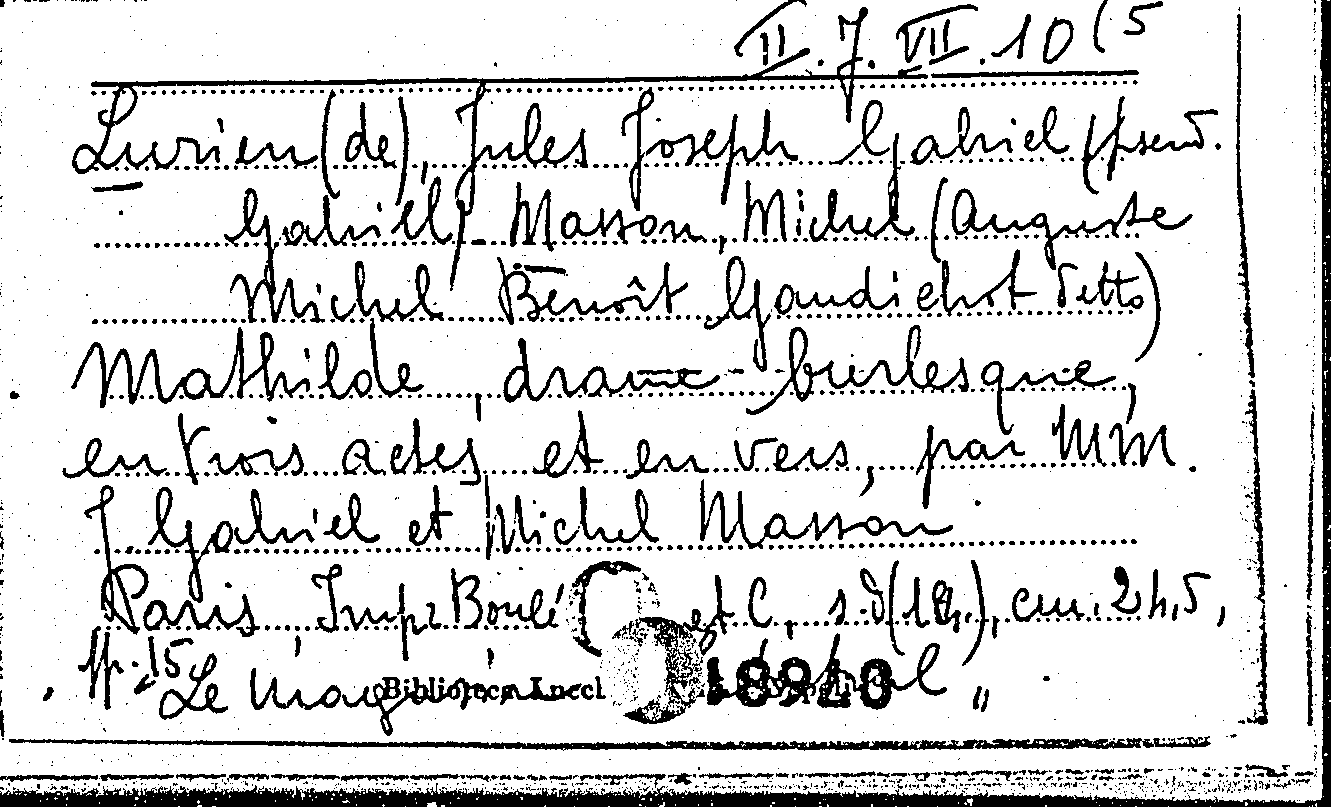 II.J.VII.10(5
Lurien(de), Jules Joseph Gabriel (pseud.
Gabriel)- Masson, Michel (Auguste
Michel Benoît Gaudichot detto)
Mathilde, drame-burlesque,
en trois actes et en vers, par MM.
J. Gabriel et Michel Masson
Paris, Impr Boulé et C, s.d(18..), cm. 24,5,
pp. 15
"Le
Biblioteca Lucchesi 18920